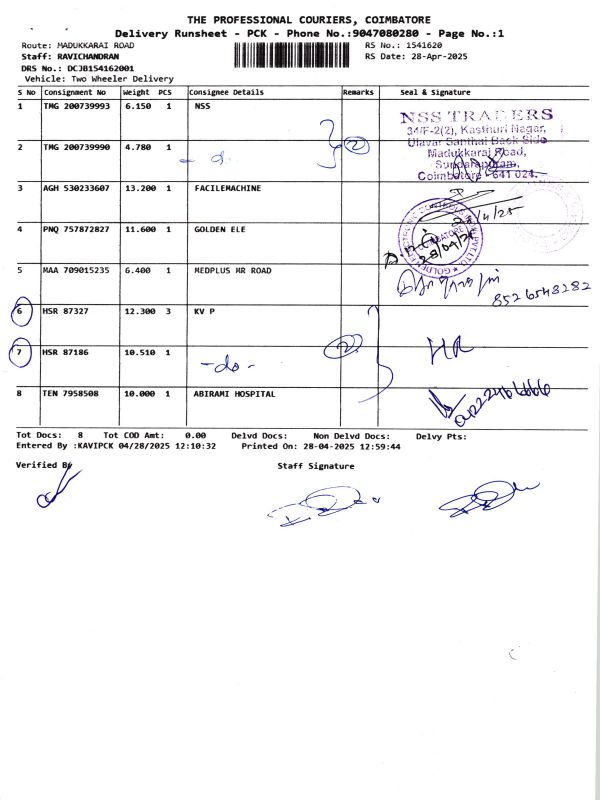 THE PROFESSIONAL COURIERS, COIMBATORE
Delivery Runsheet - PCK - Phone No.:9047080280 - Page No.:1
Route: MADUKKARAI ROAD
RS No.: 1541620
Staff: RAVICHANDRAN
RS Date: 28-Apr-2025
DRS No.: DCJB154162001
Vehicle: Two Wheeler Delivery
S No Consignment No Weight PCS Consignee Details Remarks Seal & Signature
1 TMG 200739993 6.150 1 NSS
NSS TRADERS
34/F-2(2), Kasthuri Nagar,
Ulavar Santhai Back Side
Madukkarai Road,
Sundarapuram,
Coimbatore - 641 024.
2 TMG 200739990 4.780 1 - do - 2
3 AGH 530233607 13.200 1 FACILEMACHINE
4 PNQ 757872827 11.600 1 GOLDEN ELE
28/04/25
5 MAA 709015235 6.400 1 MEDPLUS MR ROAD
8526548282
6 HSR 87327 12.300 3 KV P
7 HSR 87186 10.510 1 - do - 2
HR
8 TEN 7958508 10.000 1 ABIRAMI HOSPITAL
Tot Docs: 8 Tot COD Amt: 0.00 Delvd Docs: Non Delvd Docs: Delvy Pts:
Entered By :KAVIPCK 04/28/2025 12:10:32 Printed On: 28-04-2025 12:59:44
Verified By Staff Signature